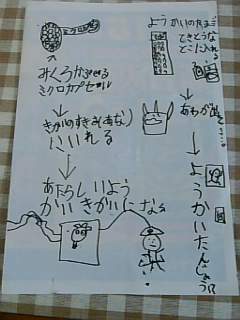 ミクロ
みくろかぷせる
ミクロカプセル
↓
きかいのすきま(あな)
にいれる
↓
あたらしいよう
かいきかいになる
ようかいのたまご
てきとうな
とこにいれる
↓
↓
ようかいたんじょう